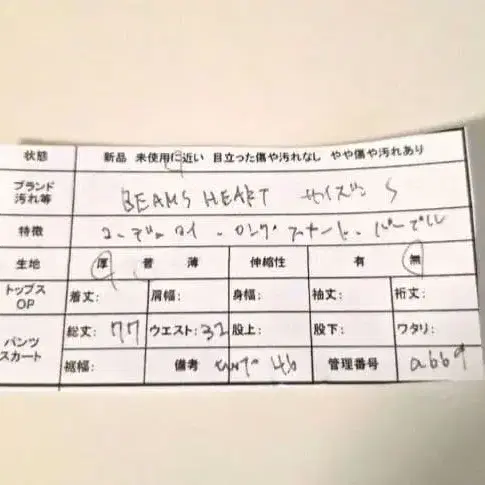 状態 新品 未使用に近い 目立った傷や汚れなし やや傷や汚れあり
ブランド
汚れ等 BEAMS HEART サイズ S
特徴 コーデュロイ ロング スカート パープル
生地 厚 普 薄 伸縮性 有 無
トップス
OP 着丈: 肩幅: 身幅: 袖丈: 裄丈:
パンツ
スカート 総丈: 77 ウエスト: 32 股上: 股下: ワタリ:
裾幅: 備考 ヒップ 46 管理番号 a669